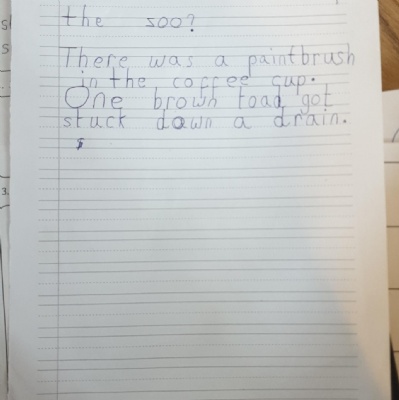 the soo?
There was a paintbrush
in the coffee cup.
One brown toad got
stuck down a drain.